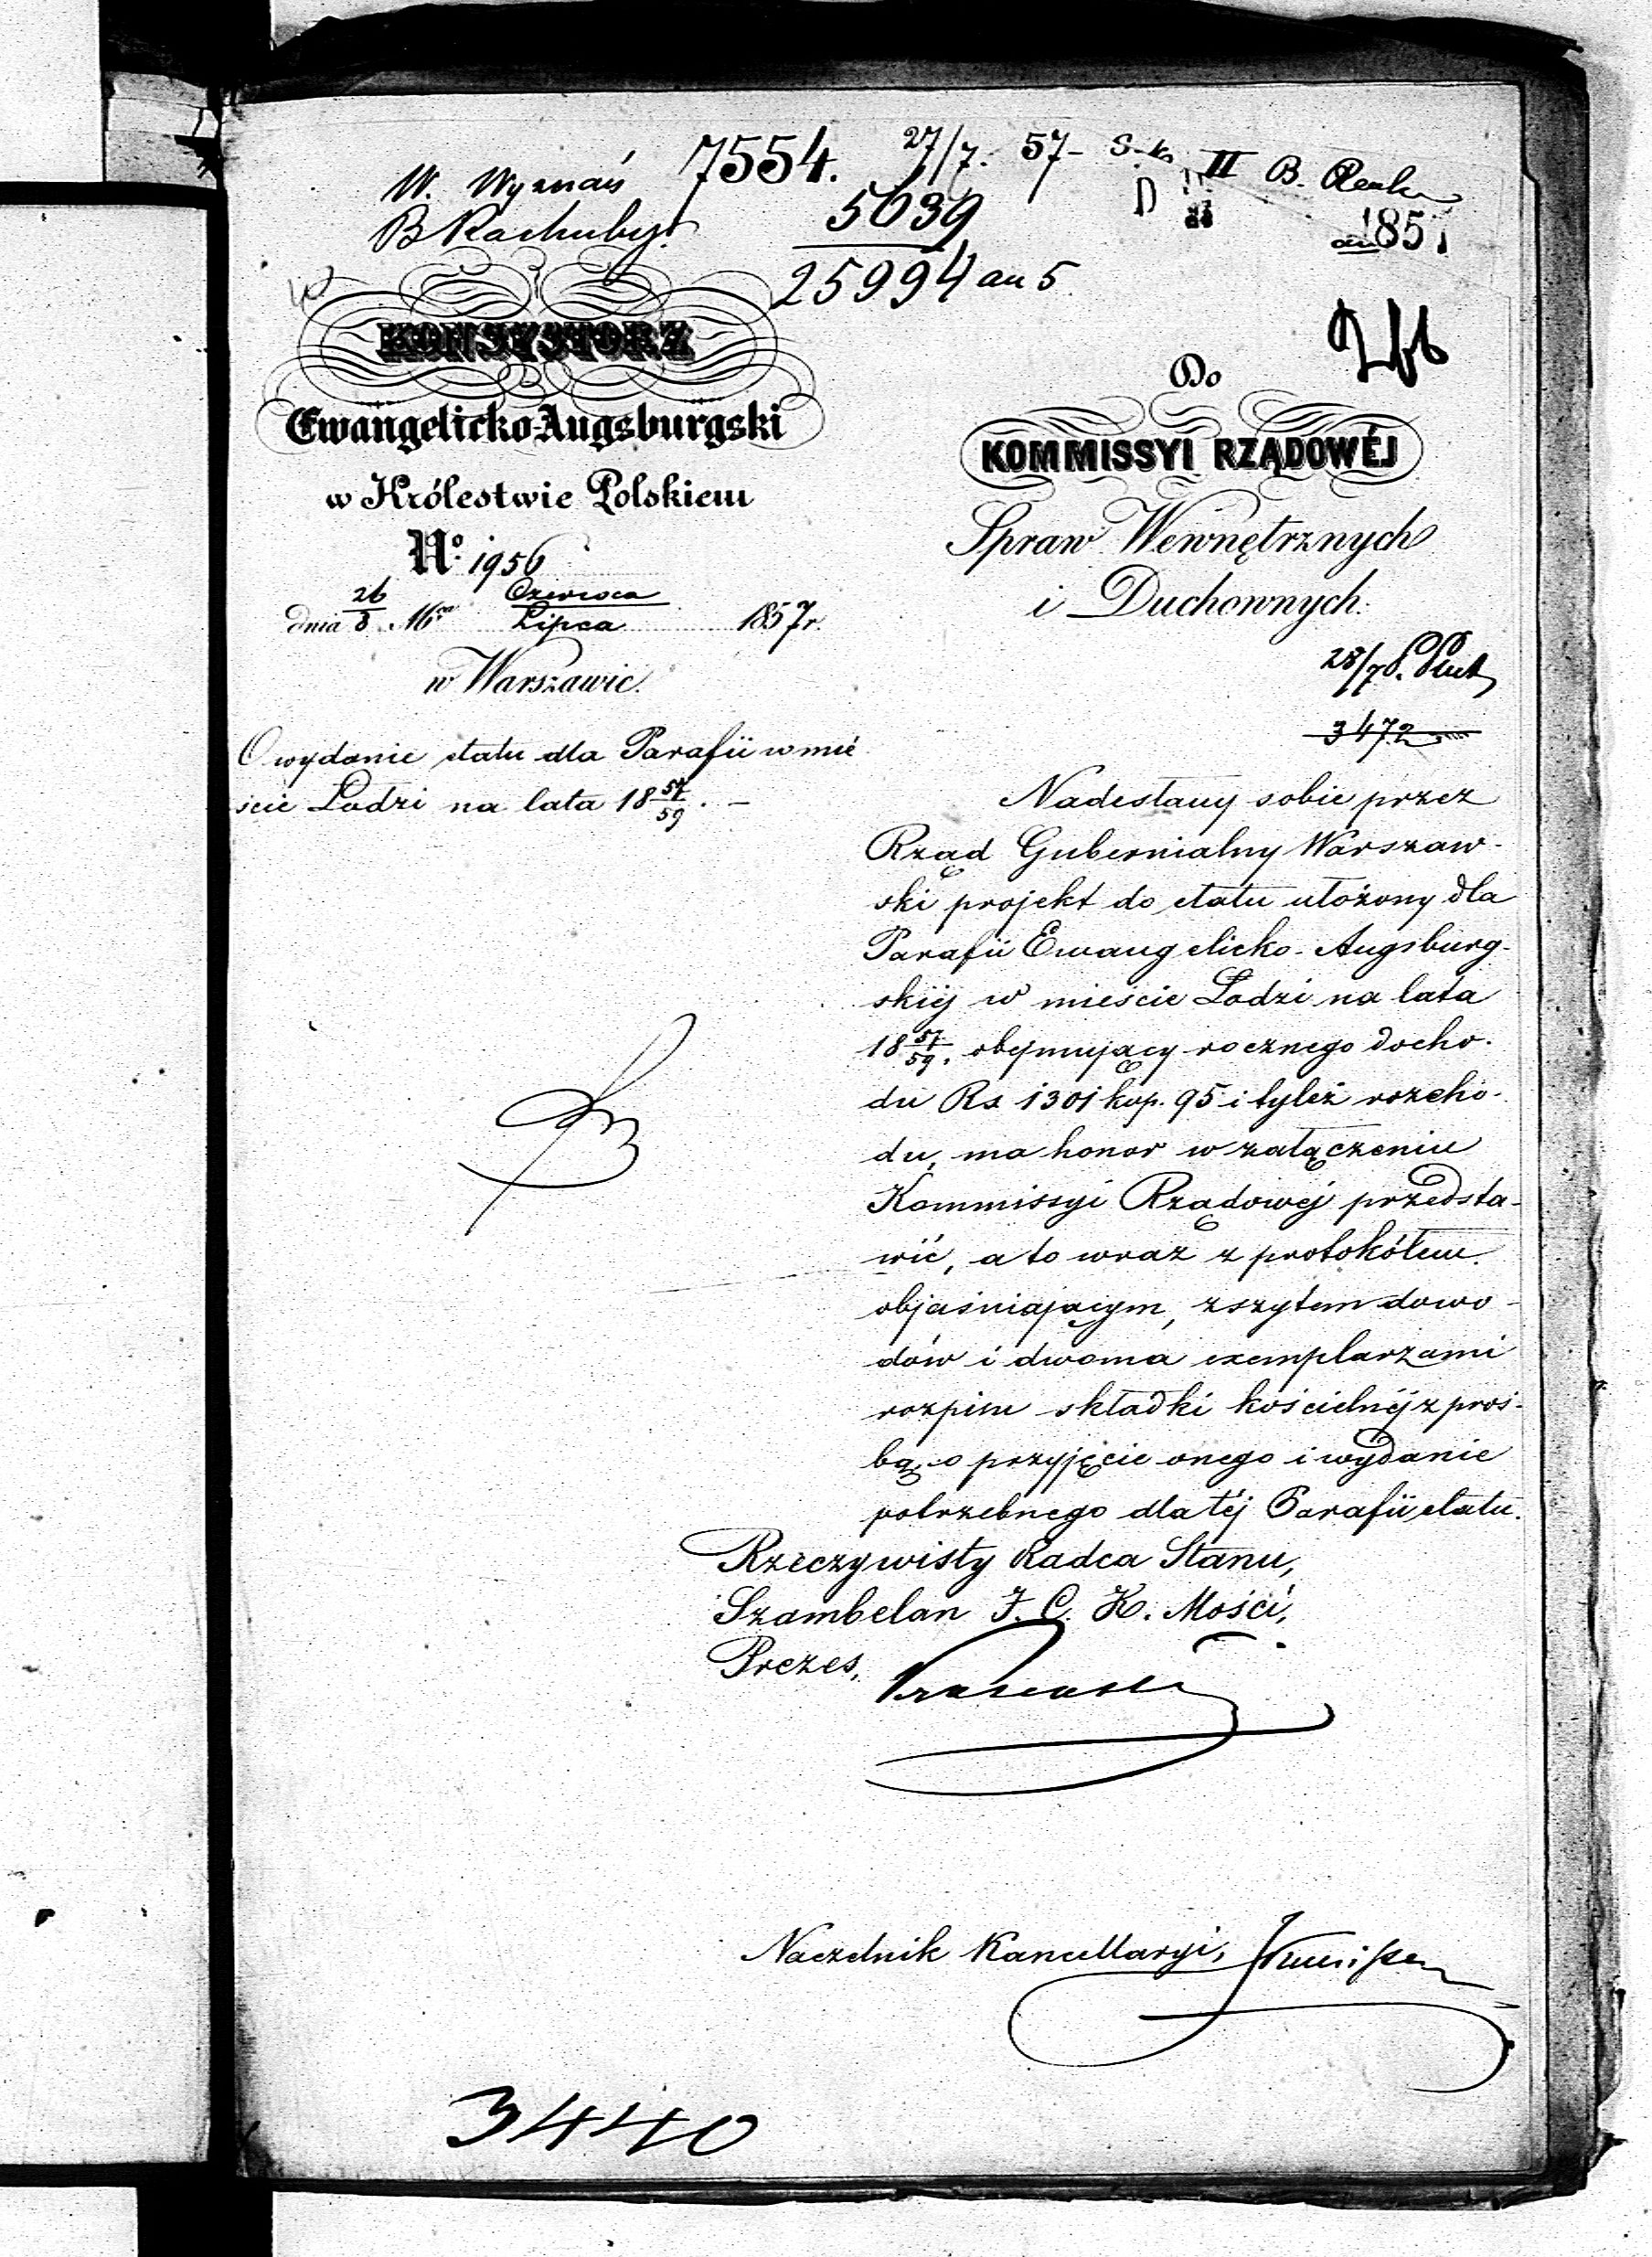 W. Wyznań
B Rachuby
7554.
27/7. 57- S-k II B.
5639
25994 au 5
1857
KONSYSTORZ
Ewangelicko-Augsburgski
w Królestwie Polskiem
No. 1956
dnia 26/8 Mca Czerwca/Lipca 1857r.
w Warszawie.
O wydanie etatu dla Parafii w mie
ście Łodzi na lata 18 57/59. -
Do
KOMMISSYI RZĄDOWÉJ
Spraw Wewnętrznych
i Duchownych.
28/7
3472
Nadesłany sobie przez
Rząd Gubernialny Warszaw-
ski projekt do etatu ułożony dla
Parafii Ewangelicko-Augsburg-
skiéj w mieście Łodzi na lata
18 57/59. obejmujący rocznego docho-
du Rs 1301 kop. 95 i tyleż rozcho-
du, ma honor w załączeniu
Kommissyi Rządowéj przedsta-
wić, a to wraz z protokółem
objaśniającym, zszytem dowo-
dów i dwoma exemplarzami
rozpisu składki kościelnéj z proś-
bą o przyjęcie onego i wydanie
potrzebnego dla téj Parafii etatu.
Rzeczywisty Radca Stanu,
Szambelan J. C. K. Mości,
Prezes,
Naczelnik Kancellaryi,
3440